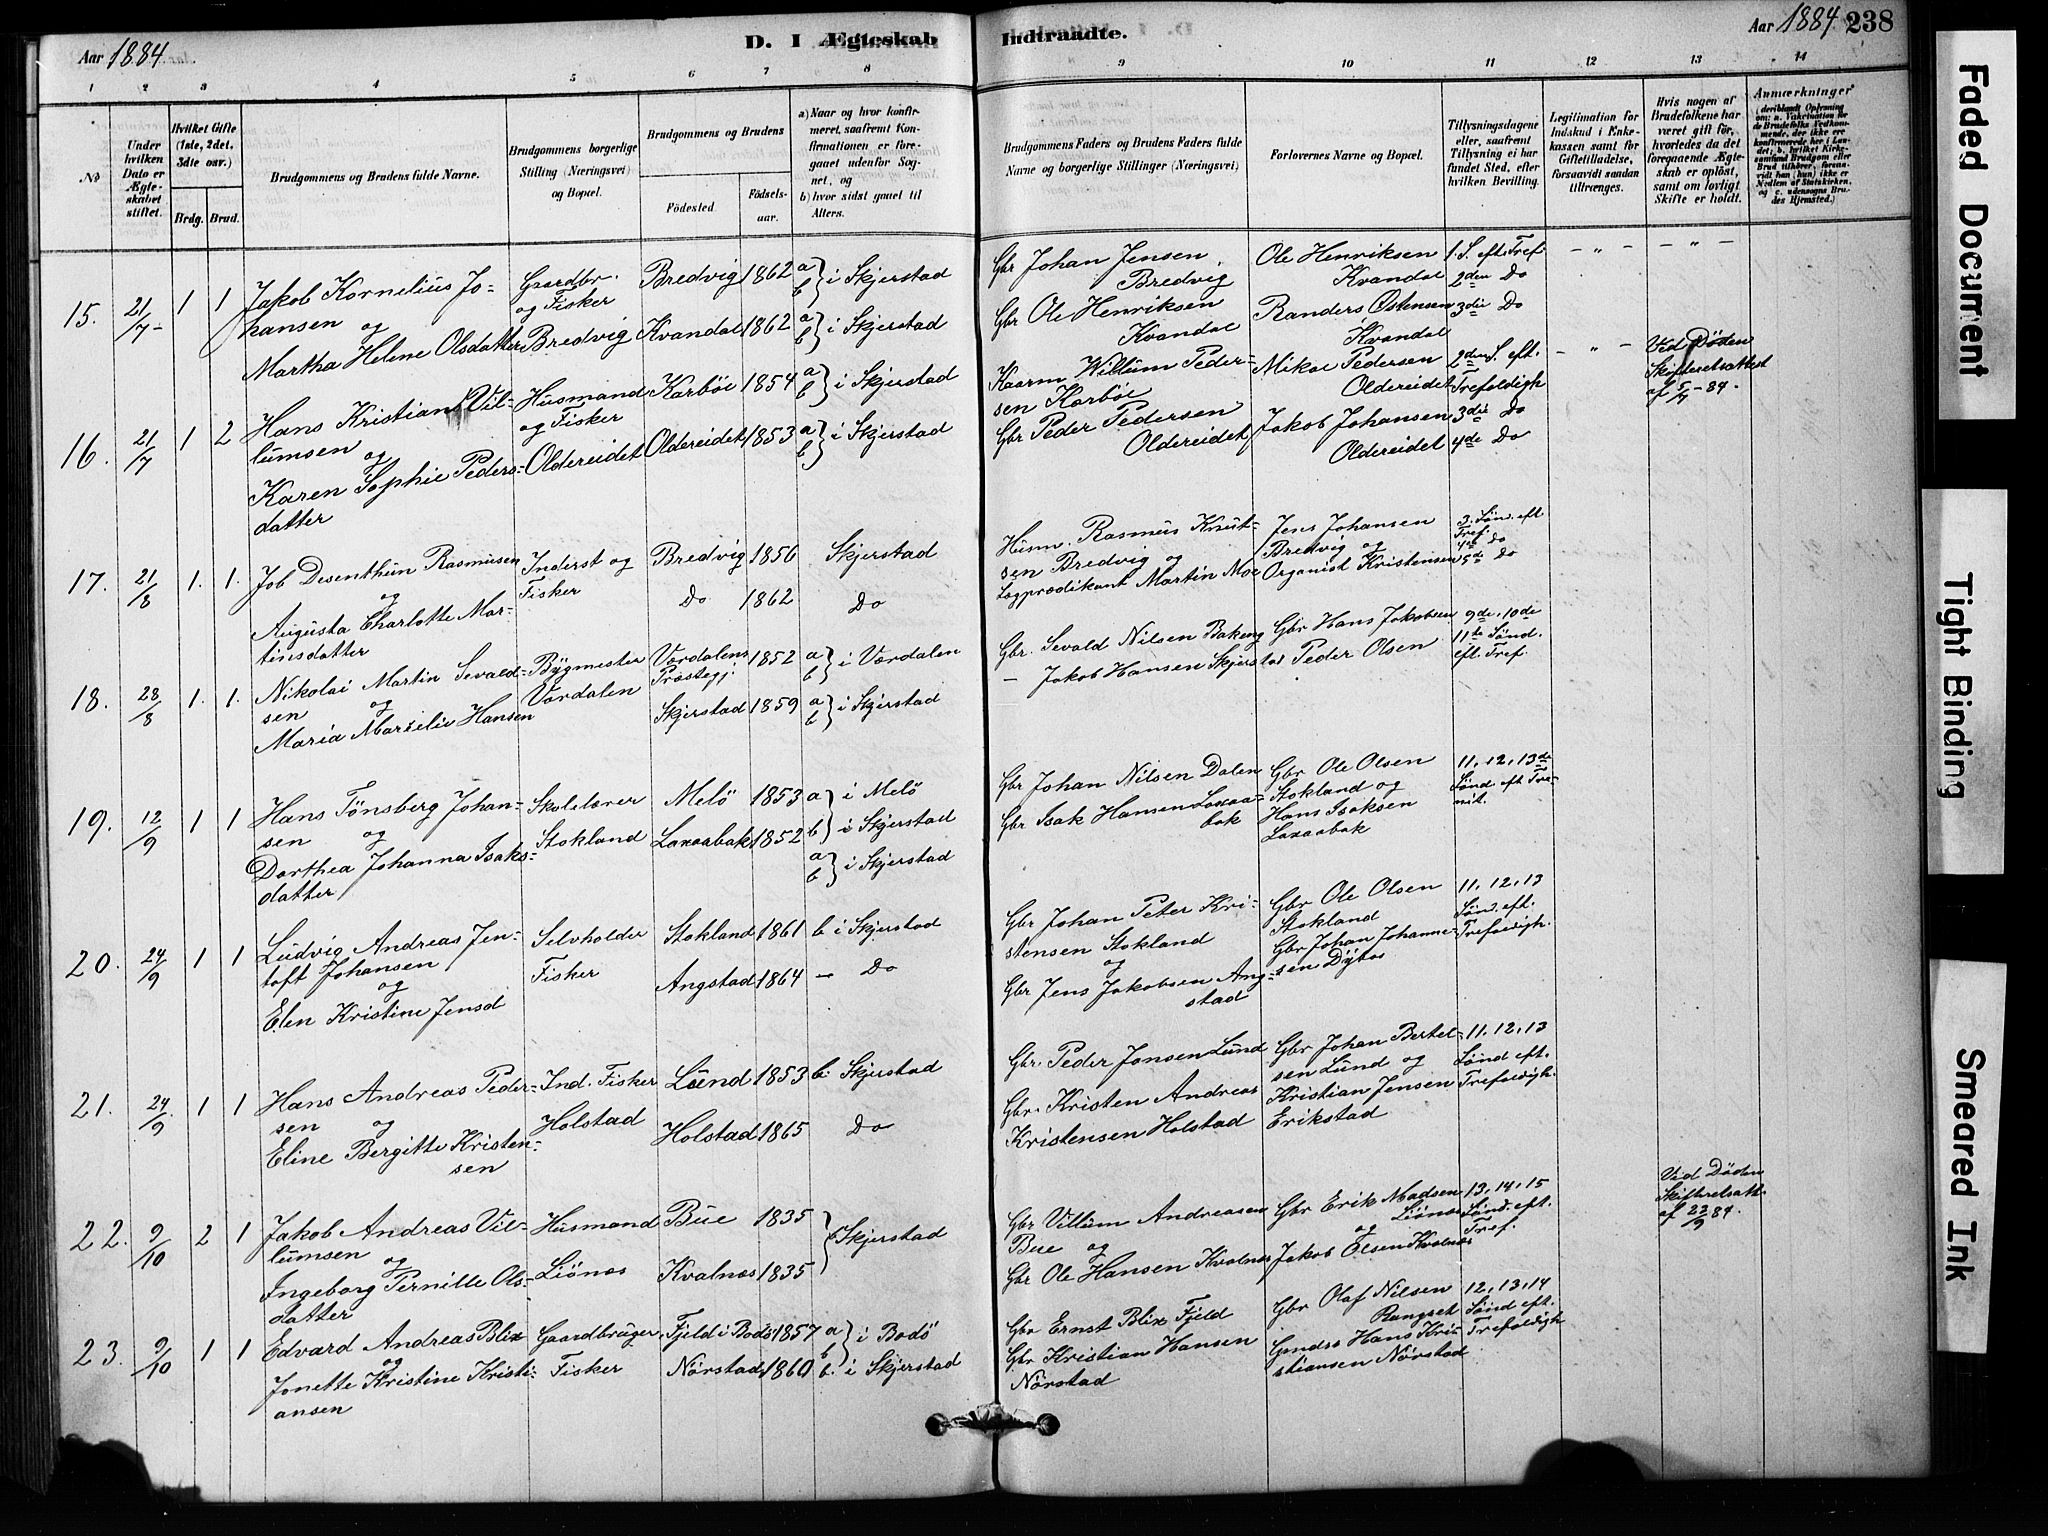 Aar 1884.
D. I Ægteskab Indtraadte.
Aar 1884. 238
1 2 3 4 5 6 7 8 9 10 11 12 13 14
No
Under hvilken Dato er Ægteskabet stiftet.
Hvilket Gifte (1ste, 2det, 3dte osv.)
Brdg. Brud.
Brudgommens og Brudens fulde Navne.
Brudgommens borgerlige Stilling (Næringsvei) og Bopæl.
Brudgommens og Brudens
Födested.
Födselsaar.
a) Naar og hvor konfirmeret, saafremt Konfirmationen er foregaaet udenfor Sognet, og
b) hvor sidst gaaet til Alters.
Brudgommens Faders og Brudens Faders fulde Navne og borgerlige Stillinger (Næringsvei)
Forlovernes Navne og Bopæl.
Tillysningsdagene eller, saafremt Tillysning ei har fundet Sted, efter hvilken Bevilling.
Legitimation for Indskud i Enkekassen samt for Giftetilladelse, forsaavidt saadan tiltrænges.
Hvis nogen af Brudefolkene har været gift før, hvorledes da det foregaaende Ægteskab er oplöst, samt om lovligt Skifte er holdt.
Anmærkninger
(deriblandt Oplysning om: a. Vakcination for de Brudefolks Vedkommende, der ikke ere konfirmerede her i Landet; b. hvilket Kirkesamfund Brudgom eller Brud tilhörer, forsaavidt han (hun) ikke er Medlem af Statskirken, og c. udensogns Brudes Hjemsted.)
15. 21/7- 1 1
Jakob Kornelius Jo-
hansen og
Martha Helene Olsdatter
Gaardbr.
og Fisker
Bredvig
Bredvig 1862 a b } i Skjerstad
Kvandal 1862 a b } i Skjerstad
Gbr Johan Jensen
Bredvig
Gbr Ole Henriksen
Kvandal
Ole Henriksen
Kvandal
Randers Ostensen
Kvandal
1. S. eft. Tref
2den Do
3die Do
- " - - " -
16. 21/7 1 2
Hans Kristian Vil-
lumsen og
Karen Sophie Peders-
datter
Husmand
og Fisker
Oldereidet
Karböl 1854 a b } i Skjerstad
Oldereidet 1853 a b } i Skjerstad
Kaarm Willum Peder-
sen Karböl
Gbr Peder Pedersen
Oldereidet
Mikal Pedersen
Oldereidet
Jakob Johansen
Oldereidet
2den S. eft.
Trefoldigh
3die Do
4de Do
- " -
Ved Döden
Skifteretsattest
af 5/7 - 84.
17. 21/8 1. 1.
Job Desenthun Rasmusen
og
Augusta Charlotte Mar-
tinsdatter
Inderst og
Fisker
Bredvig 1856 Skjerstad
Do 1862 Do
Husm. Rasmus Knut-
sen Bredvig og
Lægprædikant Martin Moe
Jens Johansen
Bredvig og
Organist Kristensen
3. Sön. eft
Tref.
4de Do
5de Do
18. 28/8 1. 1.
Nikolai Martin Sevald-
sen og
Maria Marselie Hansen
Bygmester
Værdalen
Værdalens
Præstegj. 1852 a b } i Værdalen
Skjerstad 1859 a b } i Skjerstad
Gbr. Sevald Nilsen Bakeng
- Jakob Hansen Skjerstad
Gbr Hans Jakobsen
Peder Olsen
9de, 10de
11te Sönd.
eft. Tref.
19. 12/9 1 1
Hans Tönsberg Johan-
sen og
Dorthea Johanna Isaks-
datter
Skolelærer
Stokland
Melö 1853 a } i Melö
b } i Skjerstad
Laxaabak 1852 a b } i Skjerstad
Gbr Johan Nilsen Dalen
Gbr Isak Hansen Laxaa-
bak
Gbr Ole Olsen
Stokland og
Hans Isaksen
Laxaabak
11, 12, 13de
Sönd. eft Tre-
nit.
20. 24/9 1 1
Ludvig Andreas Jen-
toft Johansen
og
Elen Kristine Jensd
Selvholder
Fisker
Stokland 1861 b i Skjerstad
Angstad 1864 - Do
Gbr Johan Peter Kri-
stensen Stokland
og
Gbr Jens Jakobsen Ang-
stad
Gbr Ole Olsen
Stokland
Gbr Johan Johanne-
sen Dybos
11, 12, 13
Sönd. eft.
Trefoldigh.
21. 24/9. 1 1
Hans Andreas Peder-
sen og
Eline Bergitte Kristen-
sen
Ind. Fisker
Holstad
Lund 1853 b. Skjerstad
Holstad 1865 Do
Gbr. Peder Jonsen Lund
Gbr. Kristen Andreas
Kristensen Holstad
Gbr Johan Bertel-
sen Lund og
Kristian Jensen
Erikstad
11, 12, 13
Sönd eft.
Trefoldigh.
22. 9/10 2 1
Jakob Andreas Vil-
lumsen og
Ingeborg Pernille Ols-
datter
Husmand
Liönæs
Bue 1835
Kvalnæs 1835 } b Skjerstad
Gbr Villum Andreasen
Bue og
Gbr Ole Hansen Kvalnæs
Gbr Erik Madsen
Liönæs
og
Jakob Olsen Kvalnæs
13, 14, 15
Sönd. eft.
Tref.
Ved Döden
Skifteretsatt.
af 22/9 84.
23. 9/10 1 1
Edvard Andreas Blix
og
Jonette Kristine Kristi-
ansen
Gaardbruger
Fisker
Fjeld i Bodö 1857 a b } i Bodö
Nörstad 1860 b. i Skjerstad
Gbr Ernst Blix Fjeld
Gbr Kristian Hansen
Nörstad
Gbr Olaf Nilsen
Rangset
Hans Kri-
stiansen Nörstad
12, 13, 14
Sönd eft.
Trefoldigh
Faded Document
Tight Binding
Smeared Ink